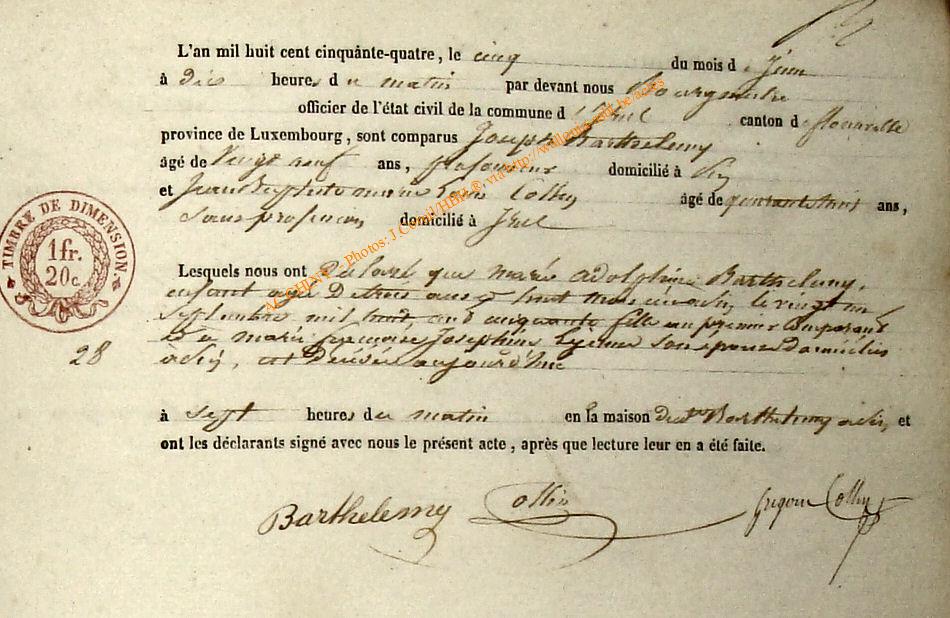 L'an mil huit cent cinquante-quatre, le cinq du mois d e Juin
à dix heures d u matin par devant nous Bourgmestre
officier de l'état civil de la commune d' Izel canton d e florenville
province de Luxembourg, sont comparus Joseph Barthelemy
âgé de Vingt neuf ans, professeur domicilié à
et Jean Baptiste marie Collin âgé de quarante trois ans,
Sans profession domicilié à Izel
Lesquels nous ont Déclaré que marie adolphine Barthelemy,
enfant agée De trois ans huit mois née le vingt
Septembre mil huit cent cinquante fille au premier comparant
et a marie françoise Josephine Son épouse Domiciliés
est Décédée aujourd'hui
28
à Sept heures d u matin en la maison dud. Barthelemy et
ont les déclarants signé avec nous le présent acte, après que lecture leur en a été faite.
Barthelemy Collin Gregoire Collin
TIMBRE DE DIMENSION
1 fr.
20 c.
Photos: J.Cornil/HBH ® via http://wallonia-asbl.be/actes